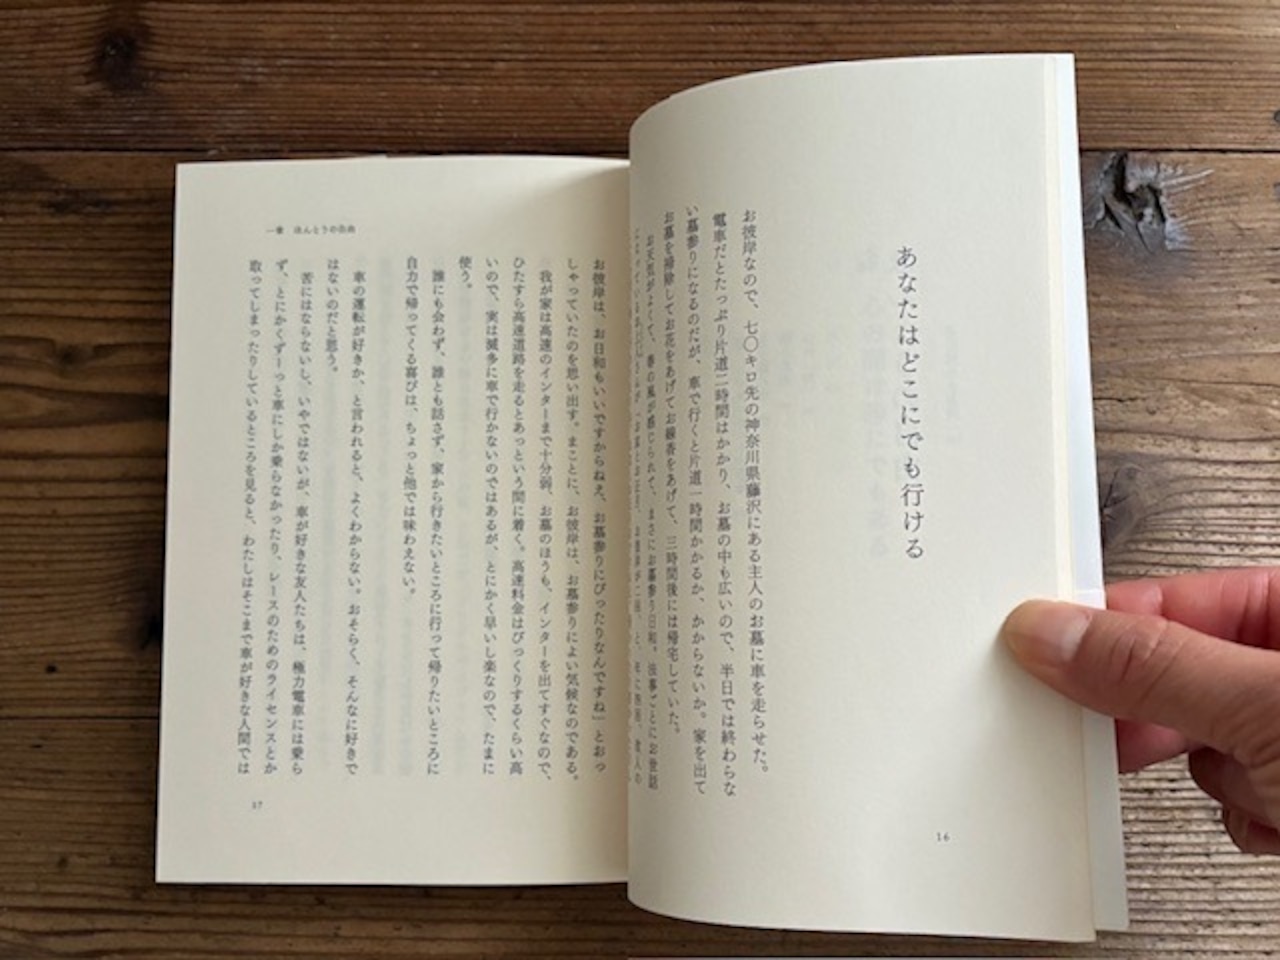 あなたはどこにでも行ける
お彼岸なので、七〇キロ先の神奈川県藤沢にある主人のお墓に車を走らせた。
電車だとたっぷり片道二時間はかかり、お墓の中も広いので、半日では終わらな
い墓参りになるのだが、車で行くと片道一時間かかるか、かからないか。家を出て
お墓を掃除してお花をあげてお線香をあげて、三時間後には帰宅していた。
お天気がよくて、春の風が感じられて、まさにお墓参り日和。法事ごとにお世話
16
一章 ほんとうの自由
お彼岸は、お日和もいいですからねえ、お墓参りにぴったりなんですね」とおっ
しゃっていたのを思い出す。まことに、お彼岸は、お墓参りによい気候なのである。
我が家は高速のインターまで十分弱、お墓のほうも、インターを出てすぐなので、
ひたすら高速道路を走るとあっという間に着く。高速料金はびっくりするくらい高
いので、実は滅多に車で行かないのではあるが、とにかく早いし楽なので、たまに
使う。
誰にも会わず、誰とも話さず、家から行きたいところに行って帰りたいところに
自力で帰ってくる喜びは、ちょっと他では味わえない。
車の運転が好きか、と言われると、よくわからない。おそらく、そんなに好きで
はないのだと思う。
苦にはならないし、いやではないが、車が好きな友人たちは、極力電車には乗ら
ず、とにかくずーっと車にしか乗らなかったり、レースのためのライセンスとか
取ってしまったりしているところを見ると、わたしはそこまで車が好きな人間では
17